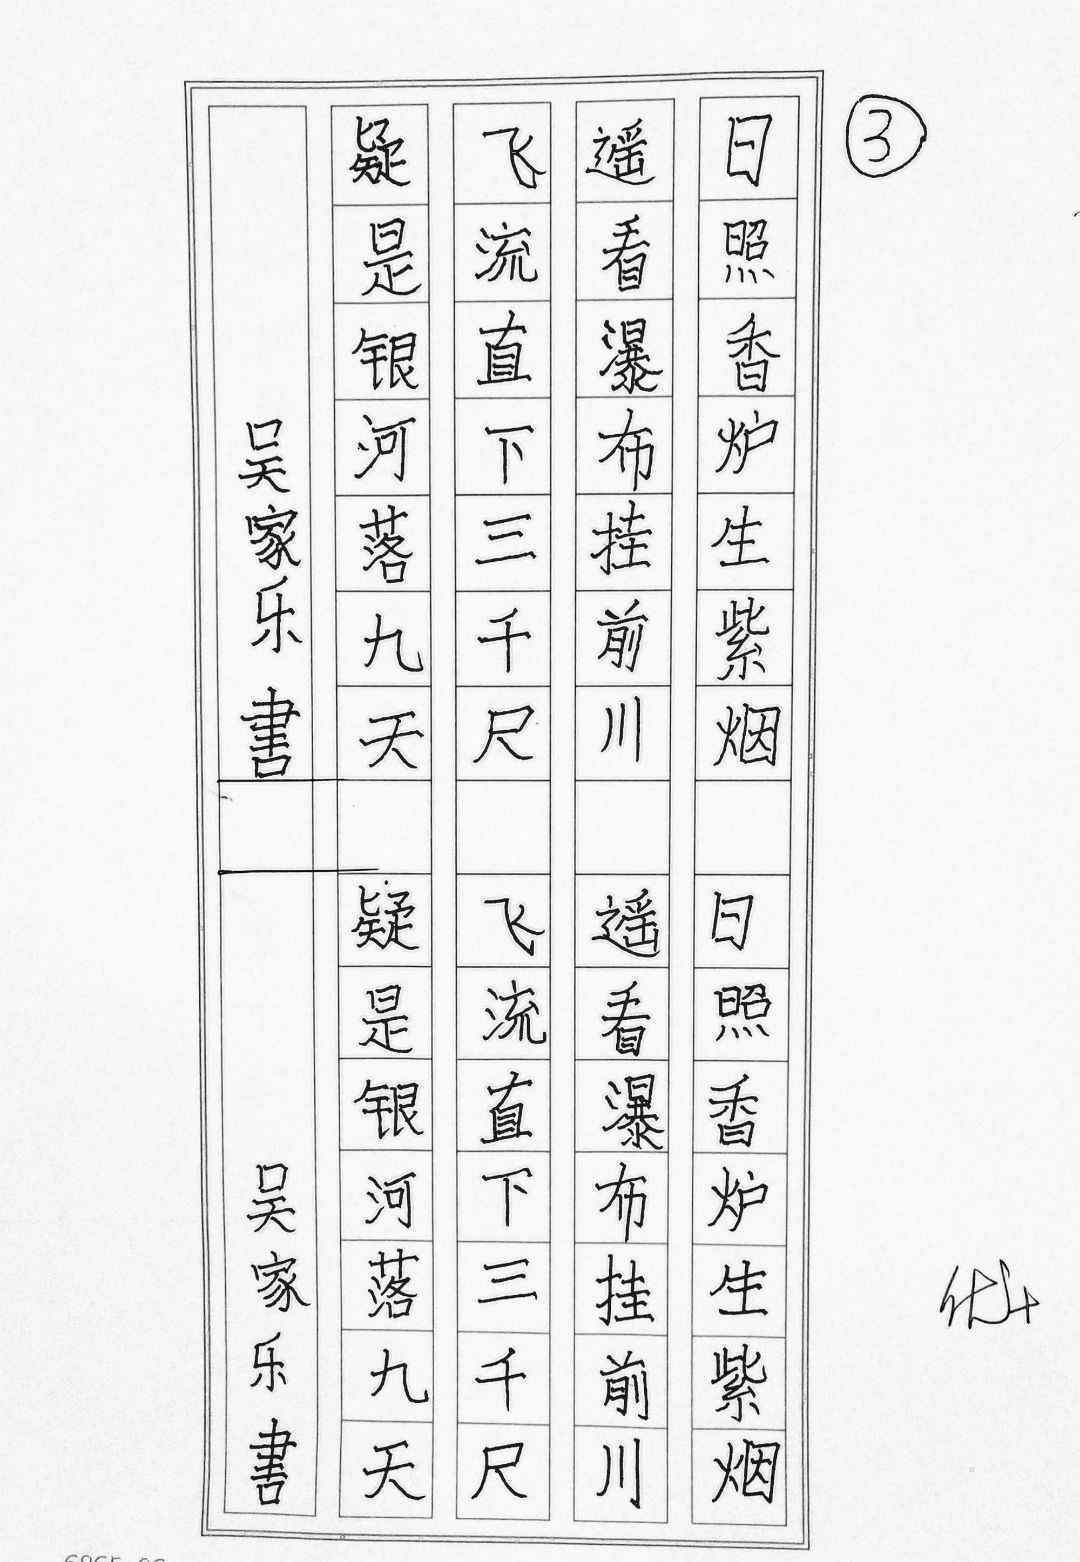 ③
日照香炉生紫烟
遥看瀑布挂前川
飞流直下三千尺
疑是银河落九天
吴家乐書
日照香炉生紫烟
遥看瀑布挂前川
飞流直下三千尺
疑是银河落九天
吴家乐書